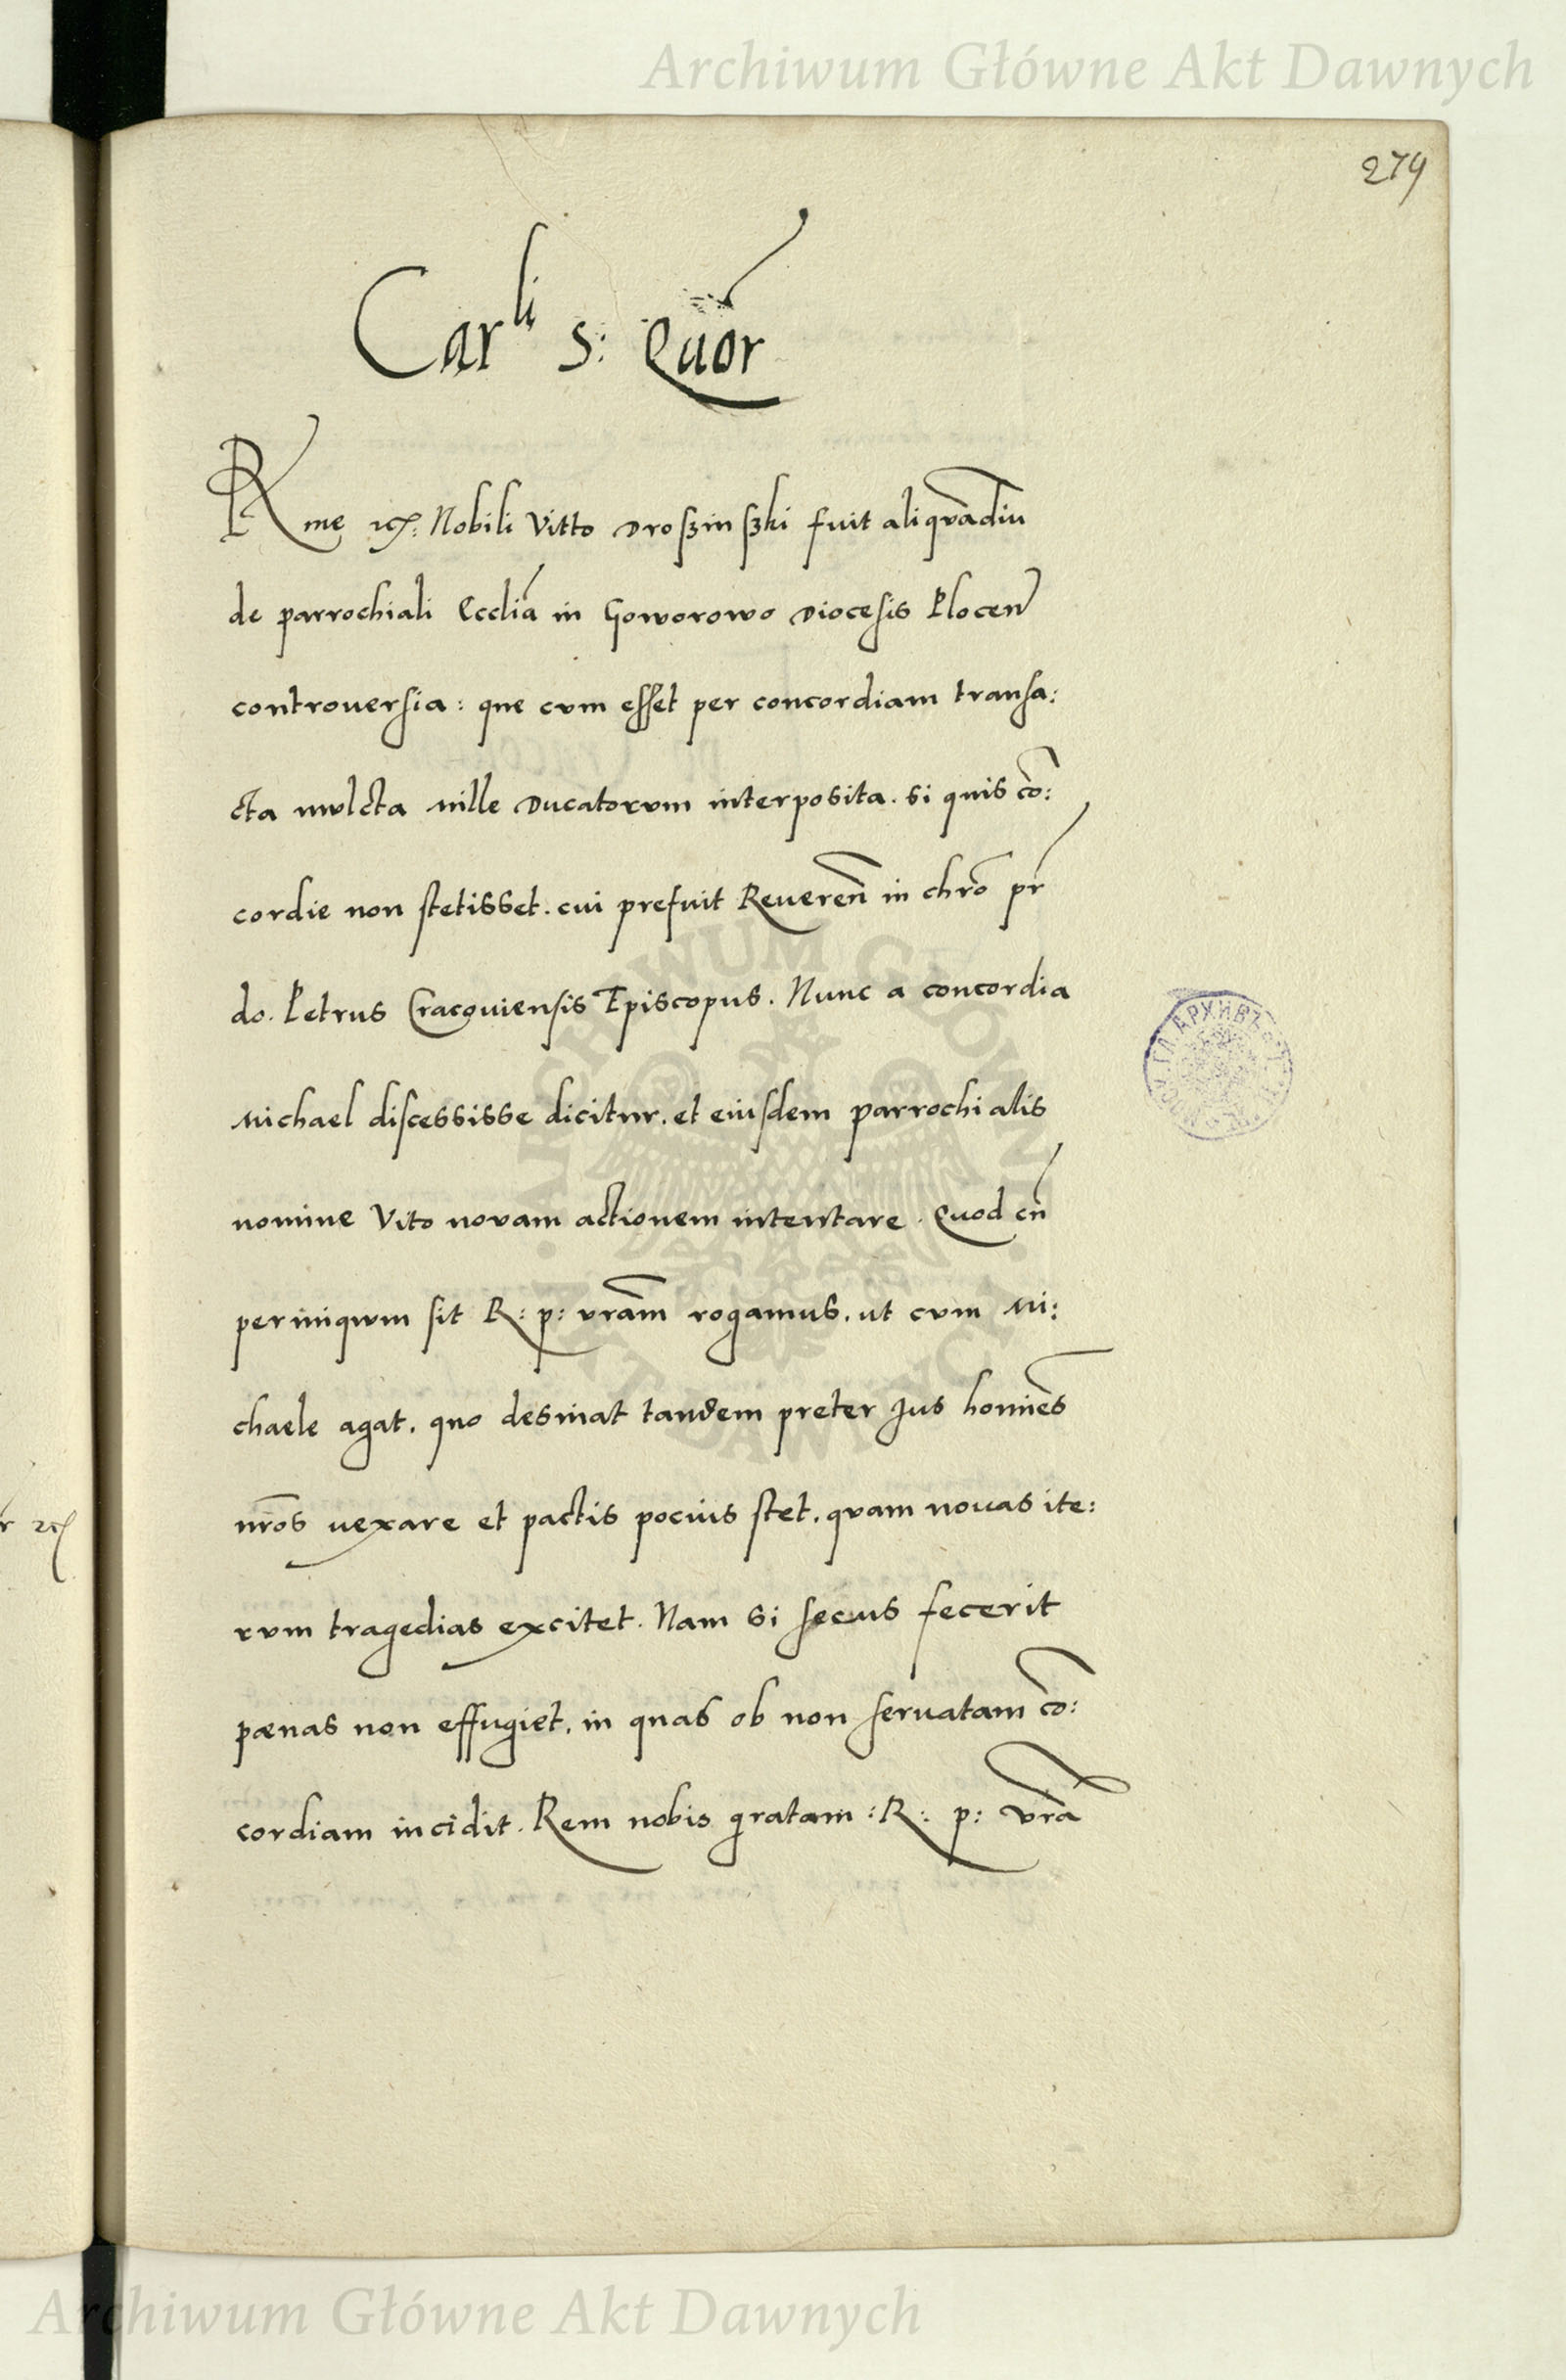 Archiwum Główne Akt Dawnych
279
Car^li S: Quor
Rme etc: Nobili Vitto Droßinßki fuit aliqvādiu
de parrochiali Eccliā in Goworowo Diocesis Plocen̄
controuersia: que cvm esset per concordiam transa:
cta mvlcta mille Ducatorvm interposita. si quis cō:
cordie non stetisset. cui prefuit Reueren̄ in chrō pr̄
do. Petrus Cracouiensis Episcopus. Nunc a concordia
Michael discessisse dicitur. et eiusdem parrochialis
nomine Vito novam actionem intentare. Quod cū
periniqvum sit R: p: vrām rogamus. ut cvm Mi:
chaele agat. quo desinat tandem preter Jus homiēs
nrōs uexare et pactis pocius stet. qvam nouas ite:
rvm tragedias excitet. Nam si secus fecerit
pænas non effugiet. in quas ob non seruatam cō:
cordiam incidit. Rem nobis gratam: R: p: vrā
Archiwum Główne Akt Dawnych